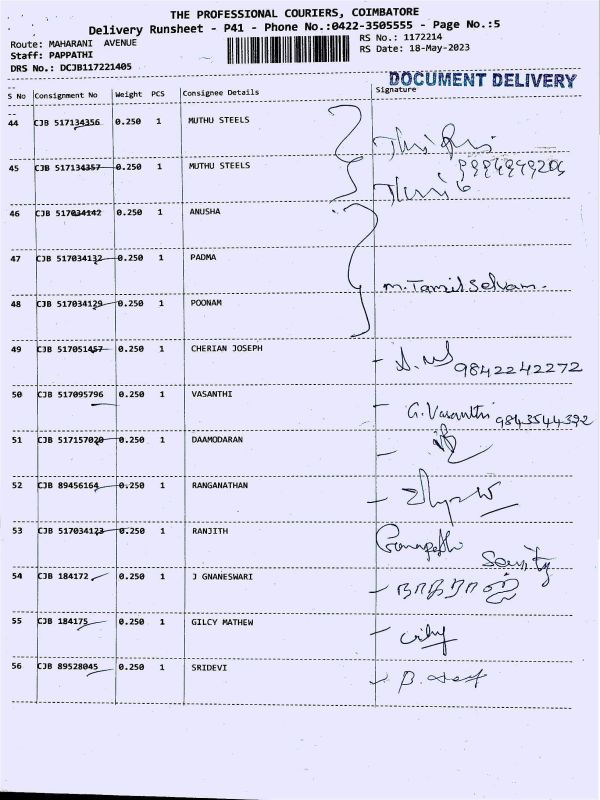 THE PROFESSIONAL COURIERS, COIMBATORE
Delivery Runsheet - P41 - Phone No.:0422-3505555 - Page No.:5
Route: MAHARANI AVENUE
RS No.: 1172214
Staff: PAPPATHI
RS Date: 18-May-2023
DRS No.: DCJB117221405
DOCUMENT DELIVERY
S No Consignment No Weight PCS Consignee Details Signature
44 CJB 517134356 0.250 1 MUTHU STEELS
45 CJB 517134357 0.250 1 MUTHU STEELS
46 CJB 517034142 0.250 1 ANUSHA
47 CJB 517034132 0.250 1 PADMA
m. Tamil Selvan.
48 CJB 517034129 0.250 1 POONAM
49 CJB 517051457 0.250 1 CHERIAN JOSEPH
9842242272
50 CJB 517095796 0.250 1 VASANTHI
G. Vasanthi 9843544392
51 CJB 517157020 0.250 1 DAAMODARAN
52 CJB 89456164 0.250 1 RANGANATHAN
53 CJB 517034123 0.250 1 RANJITH
54 CJB 184172 0.250 1 J GNANESWARI
55 CJB 184175 0.250 1 GILCY MATHEW
56 CJB 89528045 0.250 1 SRIDEVI